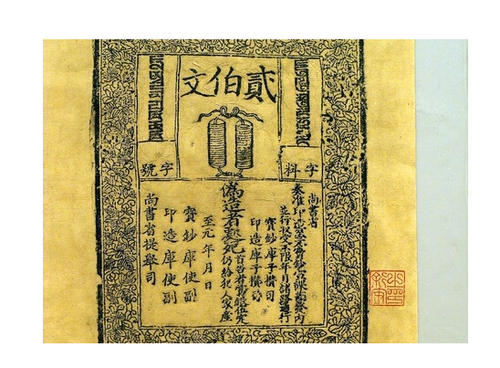 貳伯文
字料
字號
尚書省
奏准印造至元寶鈔宣課差役內
並行收受不限年月諸路通行
寶鈔庫子攢司
印造庫子攢司
偽造者處死
首告者賞銀伍定
仍給犯人家產
至元 年 月 日
寶鈔庫使副
印造庫使副
尚書省提舉司